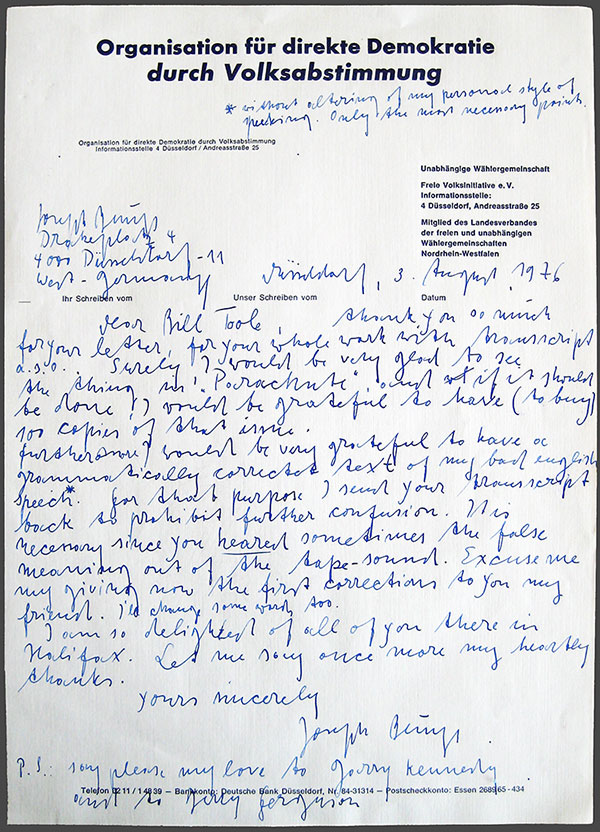 Organisation für direkte Demokratie
durch Volksabstimmung
* without altering of my personal style of
speeking. Only the most necessary points.
Organisation für direkte Demokratie durch Volksabstimmung
Informationsstelle 4 Düsseldorf / Andreasstraße 25
Unabhängige Wählergemeinschaft
Freie Volksinitiative e. V.
Informationsstelle:
4 Düsseldorf, Andreasstraße 25
Mitglied des Landesverbandes
der freien und unabhängigen
Wählergemeinschaften
Nordrhein-Westfalen
Joseph Beuys
Drakeplatz 4
4000 Düsseldorf-11
West-Germany
Düsseldorf, 3. August, 1976
Ihr Schreiben vom Unser Schreiben vom Datum
dear Bill Toole, thank you so much
for your letter, for your whole work with transscript
a.s.o.. Surely I would be very glad to see
the thing in "Parachute", and if it should
be done I would be grateful to have (to buy)
100 copies of that issue.
furthermore I would be very grateful to have a
grammatically corrected text of my bad english
speech*. for that purpose I send your transscript
back to prohibit further confusion. It is
necessary since you heared sometimes the false
meaning out of the tape-sound. Excuse me
my giving now the first corrections to you my
friend. I'll change some words too.
I am so delighted of all of you there in
Halifax. Let me say once more my heartly
thanks.
yours sincerely
Joseph Beuys
P.S.: say please my love to Garry Kennedy
Telefon 02 11 / 1 48 39 — Bankkonto: Deutsche Bank Düsseldorf, Nr. 84-31314 — Postscheckkonto: Essen 2689 65 - 434
and to Gerry ferguson